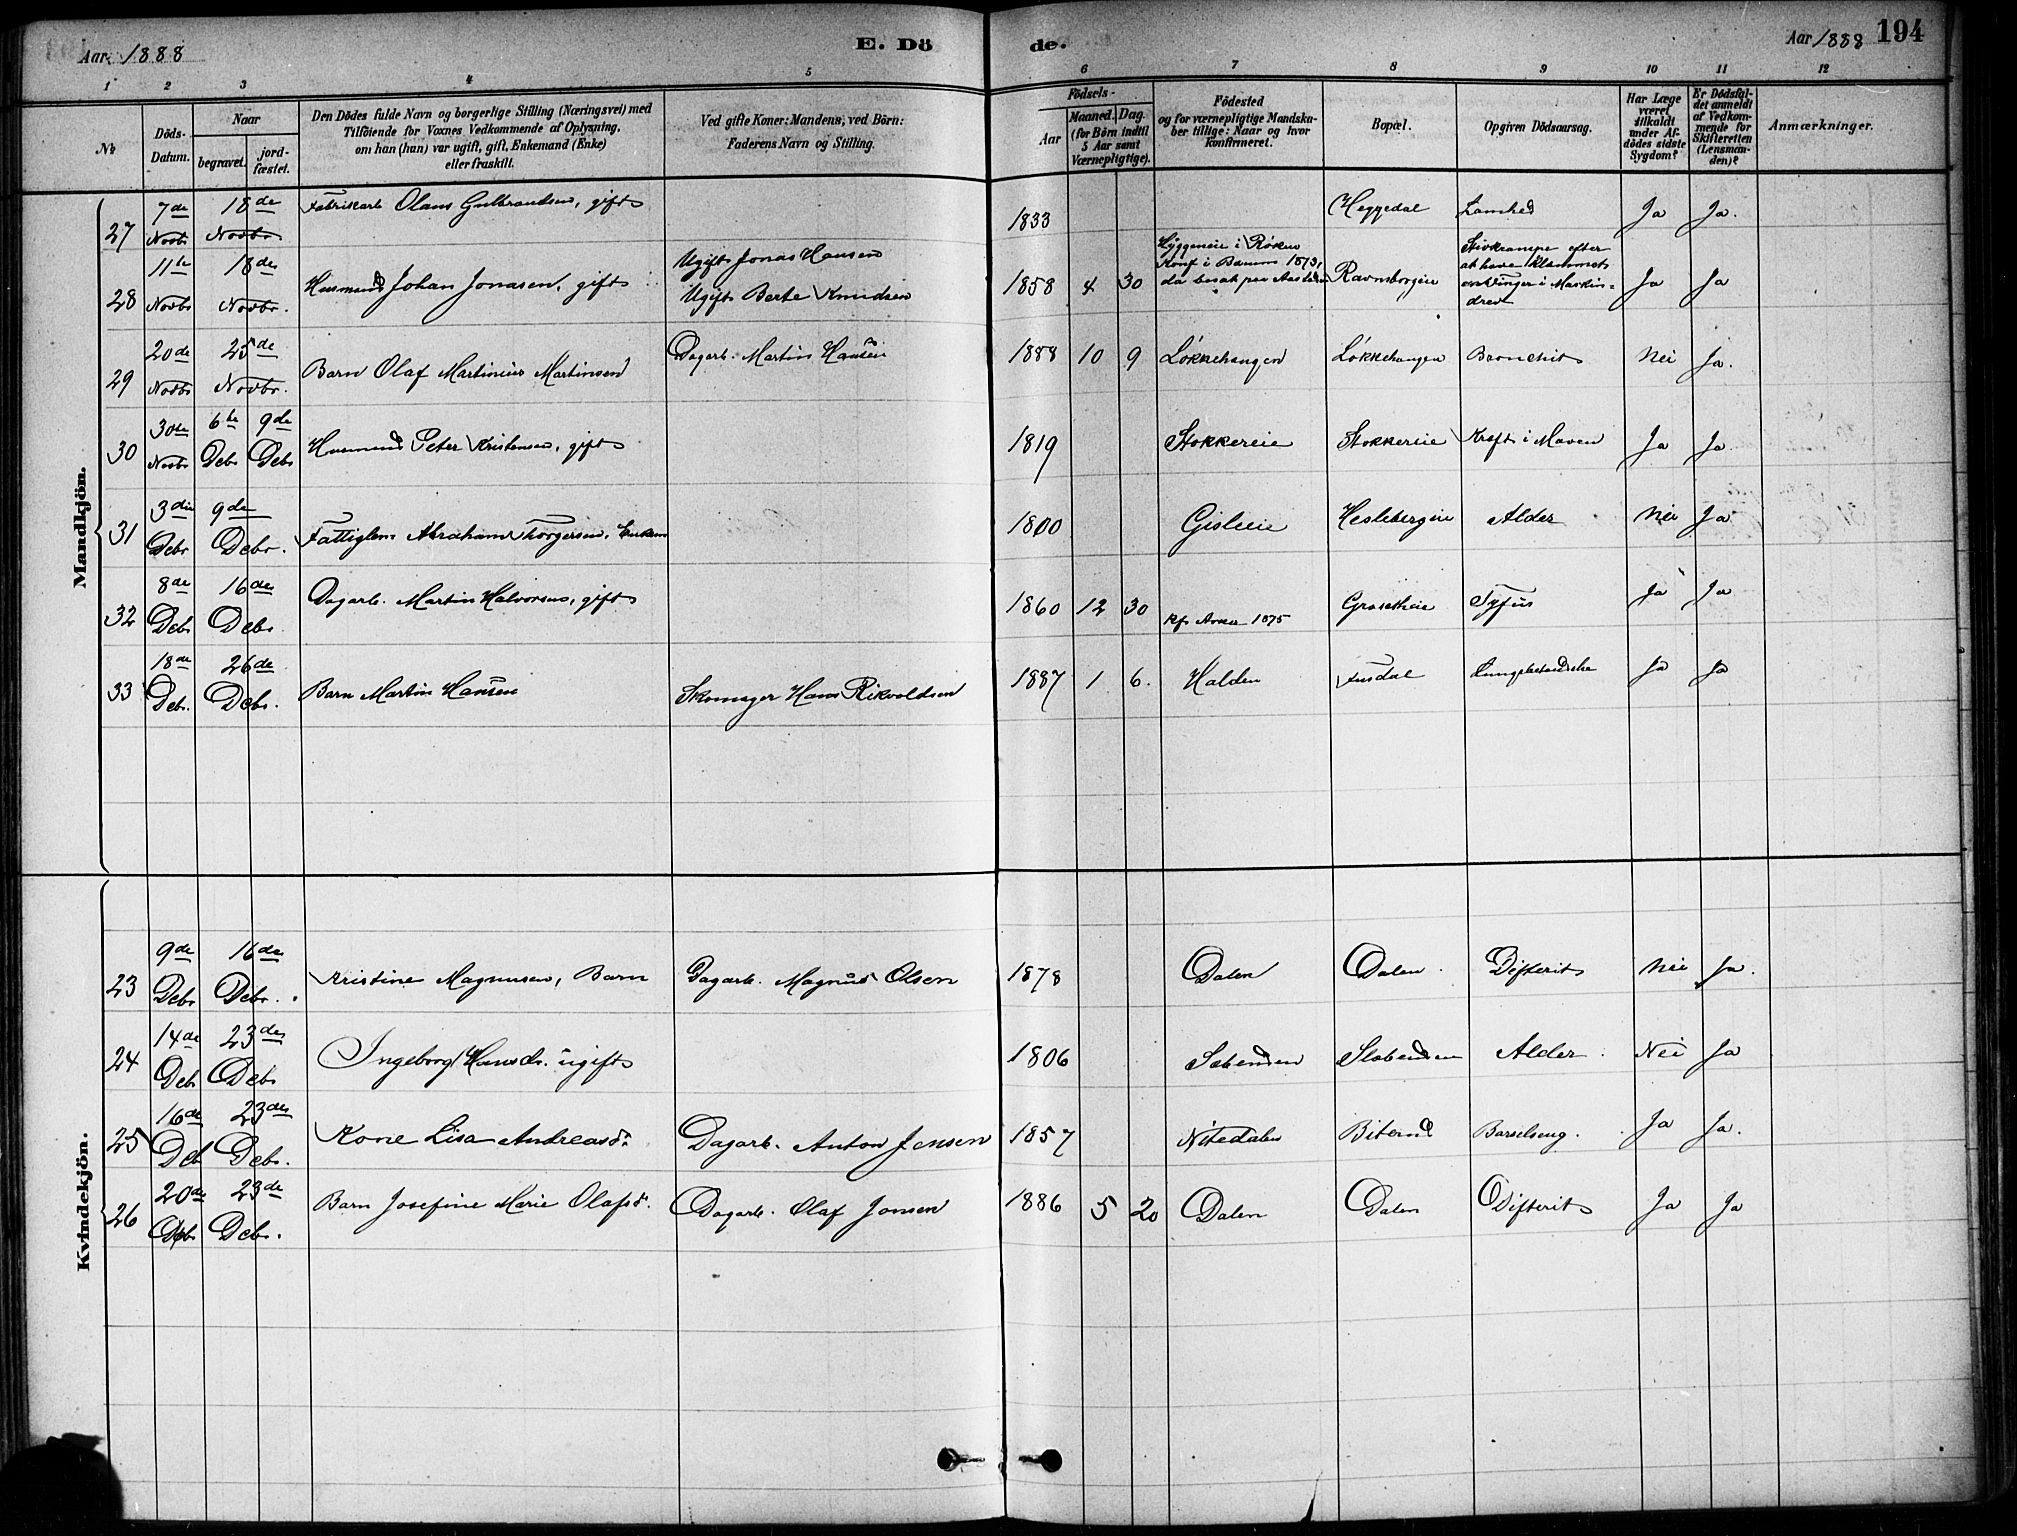 Aar 1888
E. Dö
de.
Aar 1888
194
1 2 3 4 5 6 7 8 9 10 11 12
№
Döds-
Datum.
Naar
begravet.
jord-
fæstet.
Den Dödes fulde Navn og borgerlige Stilling (Næringsvei) med
Tilföiende for Voxnes Vedkommende af Oplysning,
om han (hun) var ugift, gift, Enkemand (Enke)
eller fraskilt.
Ved gifte Koner: Mandens, ved Börn:
Faderens Navn og Stilling.
Födsels-
Aar
Maaned. Dag.
(for Börn indtil
5 Aar samt
Værnepligtige).
Födested
og for værnepligtige Mandska-
ber tillige: Naar og hvor
konfirmeret.
Bopæl.
Opgiven Dödsaarsag.
Har Læge
været
tilkaldt
under Af-
dödes sidste
Sygdom?
Er Dödsfal-
det anmeldt
af Vedkom-
mende for
Skifteretten
(Lensman-
den)?
Anmærkninger.
Mandkjön.
27 7de Novbr 18de Novbr Fabrikarb Olaus Gulbrandsen, gift 1833 Heggedal Lamhed Ja Ja.
28 11te Novbr 18de Novbr. Husmand Johan Jonasen, gift
Ugift Jonas Hansen
Ugift Berte Knudsen
1858 4 30
Hyggeneie i Røken
Konf i Bærum 1873,
Ravnsborgeie
Stivkrampe efter
at have klemmet
en Finger i Maskin-
drev
Ja Ja
29 20de Novbr 25de Novbr. Barn Olaf Martinius Martinsen Dagarb. Martin Hansen 1888 10 9 Løkkehangen Løkkehangen Bronchit Nei Ja.
30 30te Novbr 6te Debr 9de Debr Husmand Peter Kristensen, gift 1819 Stokkereie Stokkereie Kræft i Maven Ja Ja
31 3die Debr 9de Debr. Fattiglem Abraham Torgersen, Enkem 1800 Gisleeie Heslebergeie Alder Nei Ja
32 8de Debr 16de Debr Dagarb. Martin Halvorsen, gift 1860 12 30 Kfr Asker 1875 Grosetheie Tyfus Ja Ja
33 18de Debr. 26de Debr. Barn Martin Hansen Skomager Hans Rikvoldsen 1887 1 6. Halden Fusdal Lungebetændelse Ja Ja
Kvindekjön.
23 9de Debr 16de Debr. Kristine Magnusen, Barn Dagarb. Magnus Olsen 1878 Dalen Dalen Difterit Nei Ja.
24 14de Debr 23de Debr Ingeborg Hansdr. ugift 1806 Slebenden Alder Nei Ja
25 16de Deb 23de Debr. Kone Lisa Andreasdr. Dagarb. Anton Jensen 1857 Nitedalen Bitern Barselseng. Ja Ja.
26 20de Debr 23de Debr. Barn Josefine Marie Olafsdr. Dagarb. Olaf Jonsen 1886 5 20 Dalen Dalen Difterit Ja Ja